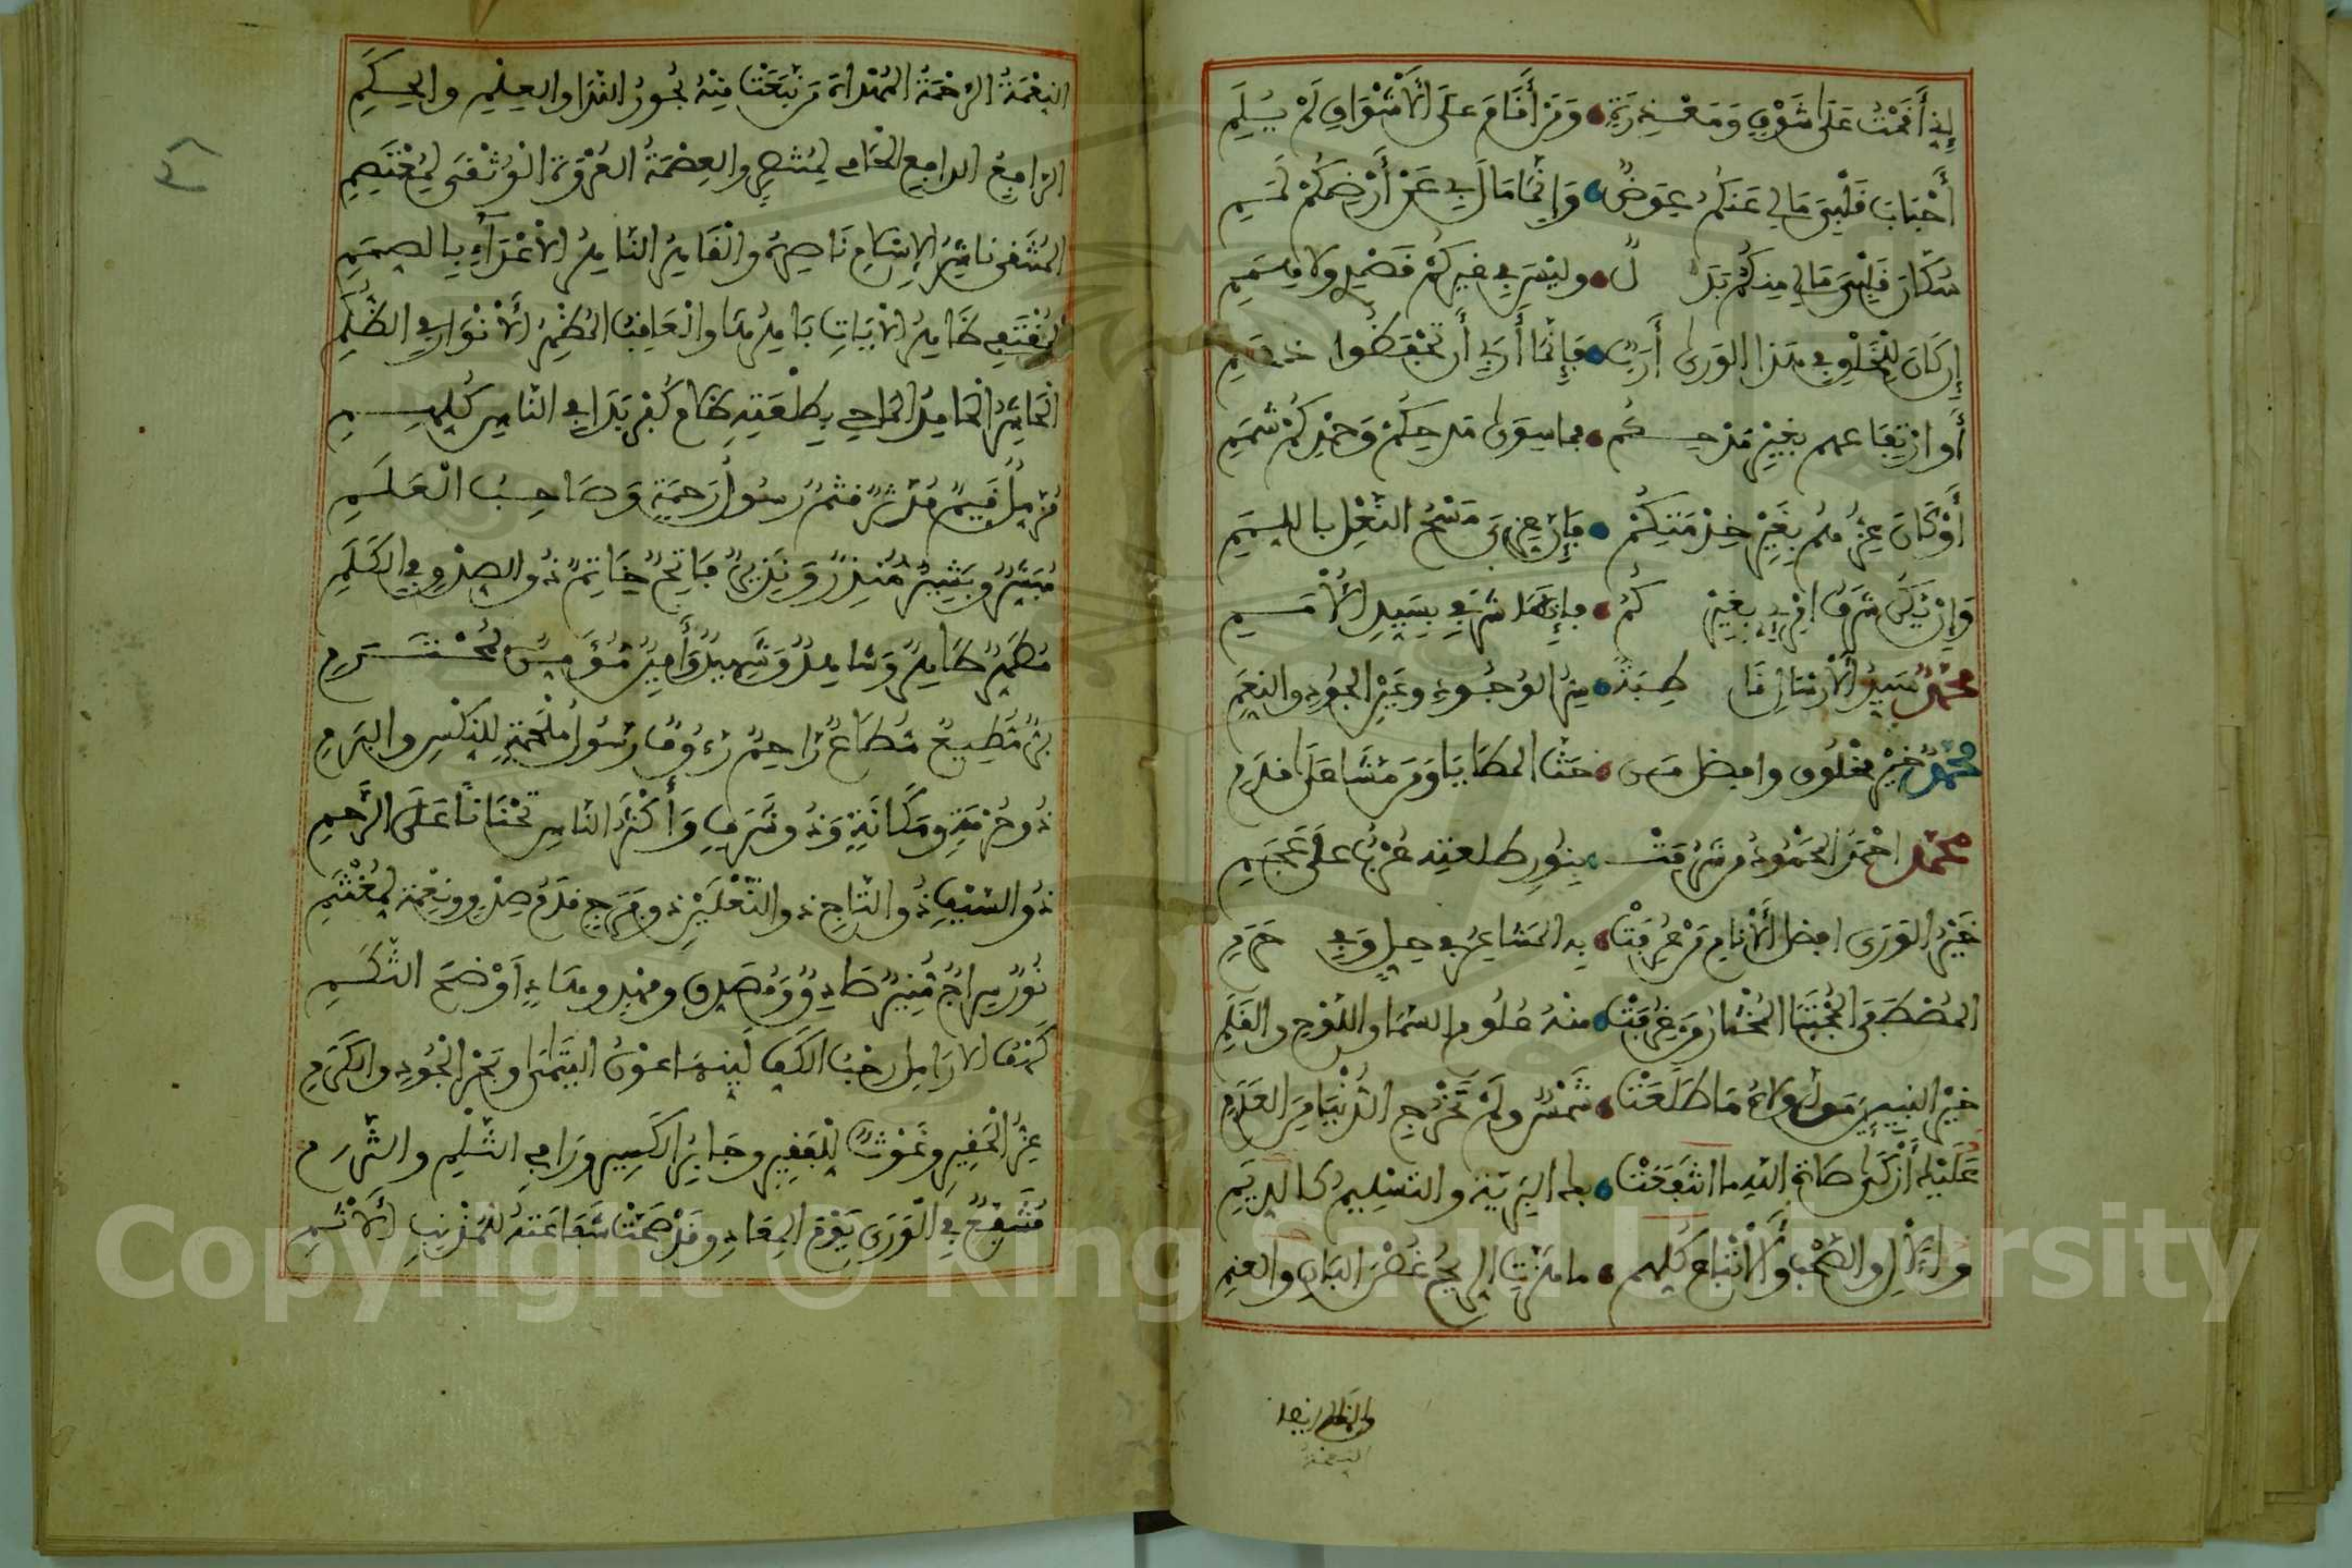 إني أقمت على شوقي ومعذرتي ومن أقام على الأشواق لم يلم
أحباب قلبي مالي عنكم عوض وإنما مال بي عن أرضكم
سكان قلبي مالي منكم بدل وليس في غيركم قصدي ولا
إن كان للخلق في هذا الورى أرب فإنما أربي أن تحفظوا
أو ارتفاعهم بغير مدحكم فما سوى مدحكم وحمدكم شممي
أو كان عزهم بغير خدمتكم فإن عزي مسح النعل باللمم
وإن يكن شرف بغيركم فإنما شرفي بسيد الأمم
محمد سيد الأرسال قاطبة من الوجود وعين الجود والنعم
محمد خير مخلوق وأفضل من حث المطايا ومن مشى على قدم
محمد أحمد المحمود من شرفت بنور طلعته عرب على عجم
خير الورى أفضل الأنام من عرفت به المشاعر في حل وفي حرم
المصطفى المجتبى المختار من غرفت منه علوم السما واللوح والقلم
خير النبيين من لولاه ما طلعت شمس ولم تخرج الدنيا من العدم
عليه أزكى صلاة الله ما انتفعت بها البرية والتسليم كالديم
والآل والصحب والأتباع كلهم ما هزت الريح غصن البان والعنم
النعمة
النعمة الرحمة المهداة من نبعت منه بحور الندا والعلم والحكم
الرافع الدافع الحامي والعصمة العروة الوثقى لمعتصم
المشفى ناشر الإسلام ناصره والقاهر الناهر الأعداء بالصمم
المقتفى طاهر الأبيات باهرها والعاقب المظهر الأنوار في الظلم
الحاشر الحامد الماحي بطلعته ظلام كفر بدا في الناس كلهم
مزمل قيم مدثر قثم رسول رحمة وصاحب العلم
مبشر وبشير منذر ونذير فاتح خاتم ذو الصدق في الكلم
مطهر طاهر وشاهد وشهيد وأمين مؤمن محترم
بر مطيع مطاع راحم رءوف رسول ملحمة
ذو حرمة ومكانة وذو شرف وأكثر الناس تحنانا على الرحم
ذو السيف ذو التاج ذو النعلين ذو فرج قدم صدق ونعمة لمغتنم
نور سراج منير صادق ومصدق ومهد وهاد أوضح
كهف الأرامل رحب الكف لينها عون اليتامى وبحر الجود والكرم
عز الحقير وغوث للفقير وجابر الكسير
مشفع في الورى يوم المعاد وقد صحت شفاعته للمذنب الأثم
Copyright © King Saud University